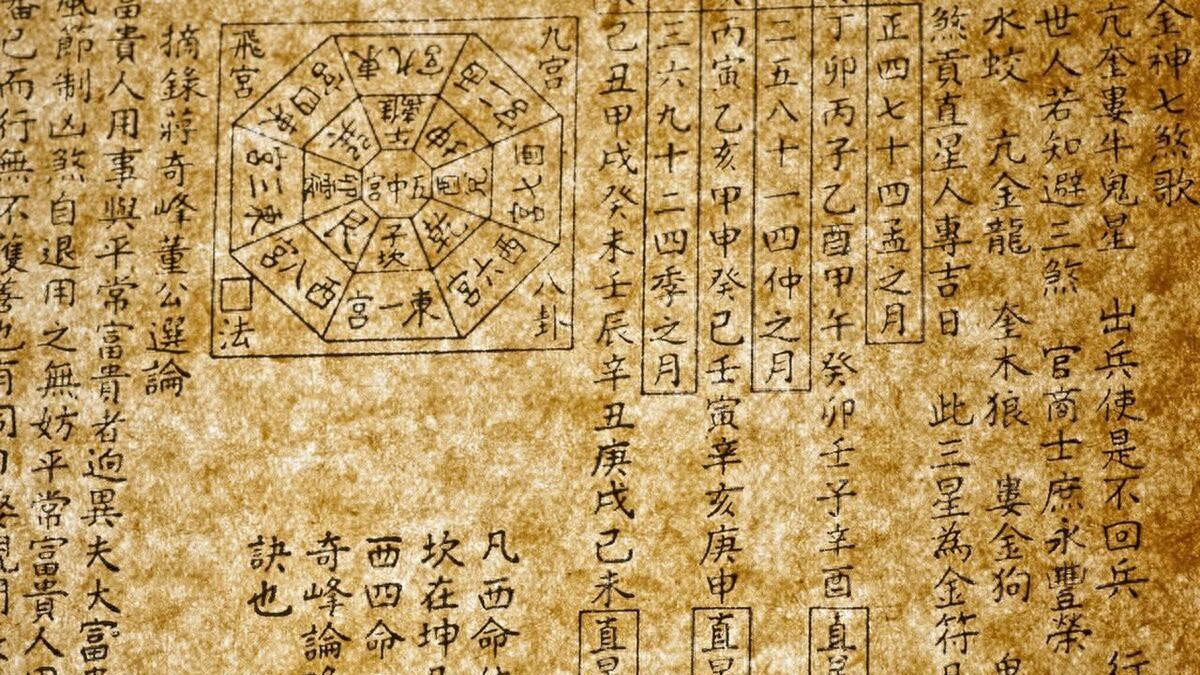 金神七煞歌
亢奎婁牛鬼星 出兵使是不回兵 行
世人若知避三煞 官商士庶永豐榮
水蛟 亢金龍 奎木狼 婁金狗 鬼
煞貢直星人專吉日 此三星為金符
正四七十四孟之月
丁卯丙子乙酉甲午癸卯壬子辛酉 直星
二五八十一四仲之月
丙寅乙亥甲申癸巳壬寅辛亥庚申 直星
三六九十二四季之月
己丑甲戌癸未壬辰辛丑庚戌己未 直星
九宮
八卦
飛宮
□法
東九宮
西七宮
西六宮
東一宮
西八宮
東三宮
東四宮
午離
坤
酉兌
乾
子坎
艮
卯震
巽
五中宮
凡西命
坎在坤
西四命
奇峰論
訣也
摘錄蔣奇峰董公選論
富貴人用事與平常富貴者迥異夫大富
風節制凶煞自退用之無妨平常富貴人
已而行無不獲善也